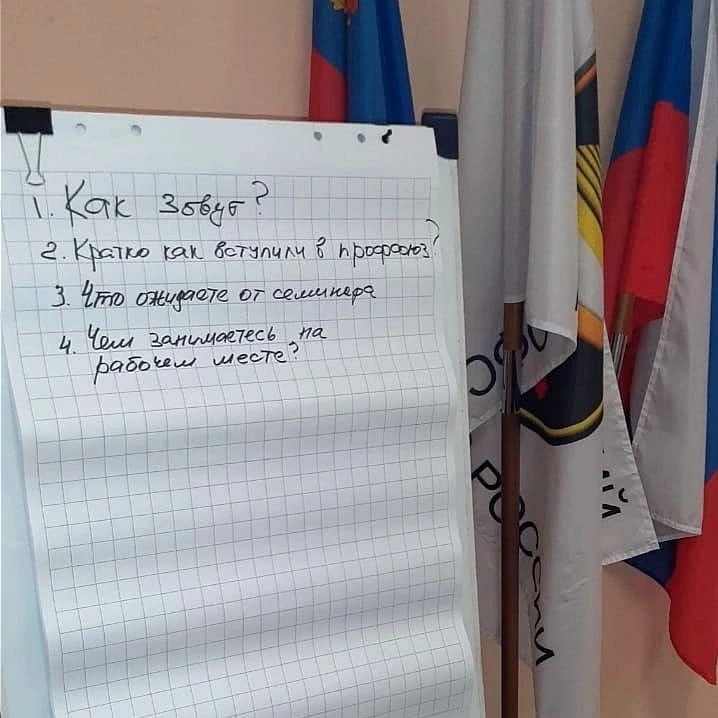 1. Как зовут?
2. Кратко как вступили в профсоюз?
3. Что ожидаете от семинара
4. Чем занимаетесь на
рабочем месте?
РОССИИ